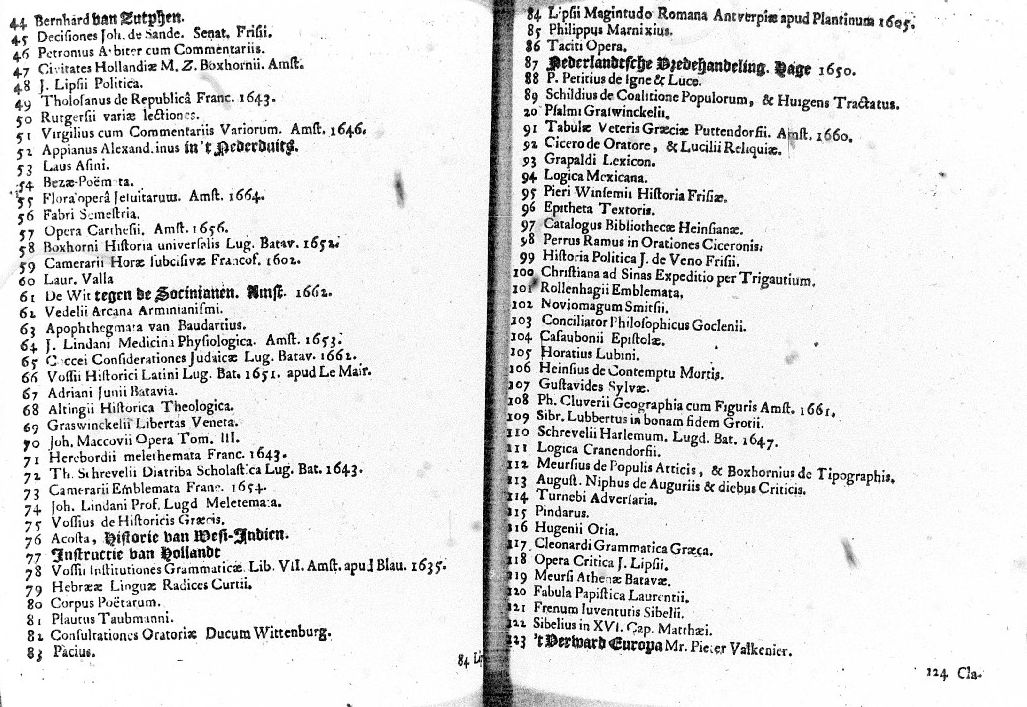 44 Bernhard van Zutphen.
45 Decisiones Joh. de Sande. Senat. Frisii.
46 Petronius Arbiter cum Commentariis.
47 Civitates Hollandiæ M. Z. Boxhornii. Amst.
48 J. Lipsii Politica.
49 Tholosanus de Republicâ Franc. 1643.
50 Rutgersii variæ lectiones.
51 Virgilius cum Commentariis Variorum. Amst. 1646.
52 Appianus Alexandrinus in 't Nederduits.
53 Laus Asini.
54 Bezæ Poëmata.
55 Flora operâ Jesuitarum. Amst. 1664.
56 Fabri Semestria.
57 Opera Carthesii. Amst. 1656.
58 Boxhorni Historia universalis Lug. Batav. 1652.
59 Camerarii Horæ subcisivæ Francof. 1602.
60 Laur. Valla
61 De Wit tegen de Socinianen. Amst. 1662.
62 Vedelii Arcana Arminianismi.
63 Apophthegmata van Baudartius.
64 J. Lindani Medicina Physiologica. Amst. 1653.
65 Coccei Considerationes Judaicæ Lug. Batav. 1662.
66 Vossii Historici Latini Lug. Bat. 1651. apud le Mair.
67 Adriani Junii Batavia.
68 Altingii Historica Theologica.
69 Graswinckelii Libertas Veneta.
70 Joh. Maccovii Opera Tom. III.
71 Herebordii melethemata Franc. 1643.
72 Th. Schrevelii Diatriba Scholastica Lug. Bat. 1643.
73 Camerarii Emblemata Franc. 1654.
74 Joh. Lindani Prof. Lugd Meletemata.
75 Vossius de Historicis Græcis.
76 Acosta, Historie van West-Indien.
77 Instructie van Hollandt
78 Vossii Institutiones Grammaticæ Lib. VII. Amst. apud Blau. 1635.
79 Hebrææ Linguæ Radices Curtii.
80 Corpus Poëtarum.
81 Plautus Taubmanni.
82 Consultationes Oratoriæ Ducum Wittenburg.
83 Pacius.
84 Li
84 Lipsii Magintudo Romana Antverpiæ apud Plantinum 1605.
85 Philippus Marnixius.
86 Taciti Opera.
87 Nederlandtsche Vredehandeling. Hage 1650.
88 P. Petitius de Igne & Luce.
89 Schildius de Coalitione Populorum, & Huigens Tractatus.
20 Psalmi Graswinckelii.
91 Tabulæ Veteris Græciæ Puttendorsii. Amst. 1660.
92 Cicero de Oratore, & Lucilii Reliquiæ.
93 Grapaldi Lexicon.
94 Logica Mexicana.
95 Pieri Winsemii Historia Frisiæ.
96 Epitheta Textoris.
97 Catalogus Bibliothecæ Heinsianæ.
98 Petrus Ramus in Orationes Ciceronis.
99 Historia Politica J. de Veno Frisii.
100 Christiana ad Sinas Expeditio per Trigautium.
101 Rollenhagii Emblemata,
102 Noviomagum Smitsii.
103 Conciliator Philosophicus Goclenii.
104 Casaubonii Epistolæ.
105 Horatius Lubini.
106 Heinsius de Contemptu Mortis.
107 Gustavides Sylvæ.
108 Ph. Cluverii Geographia cum Figuris Amst. 1661.
109 Sibr. Lubbertus in bonam fidem Grotii.
110 Schrevelii Harlemum. Lugd. Bat. 1647.
111 Logica Cranendorsii.
112 Meursius de Populis Atticis, & Boxhornius de Tipographis.
113 August. Niphus de Auguriis & diebus Criticis.
114 Turnebi Adversaria.
115 Pindarus.
116 Hugenii Otia.
117 Cleonardi Grammatica Græca.
118 Opera Critica J. Lipsii.
119 Meursi Athenæ Batavæ.
120 Fabula Papistica Laurentii.
121 Frenum Iuventutis Sibelii.
122 Sibelius in XVI. Cap. Matthæi.
123 't Verward Europa Mr. Pieter Valkenier.
124 Cla-